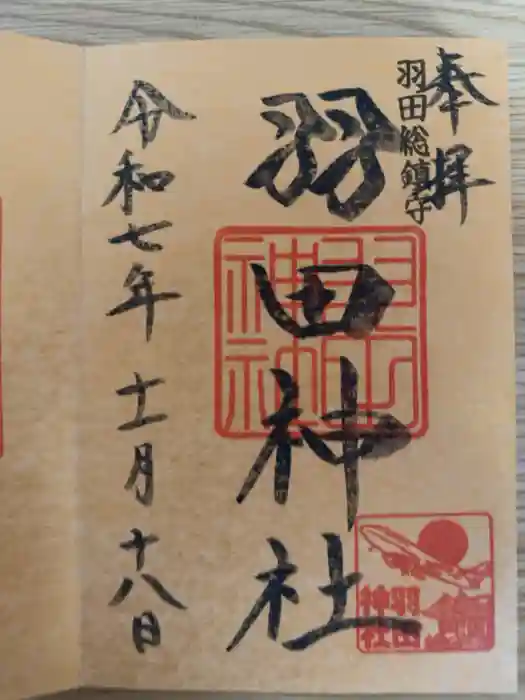 奉拝
羽田総鎮守
羽田神社
令和七年十一月十八日
羽田神社
羽田神社